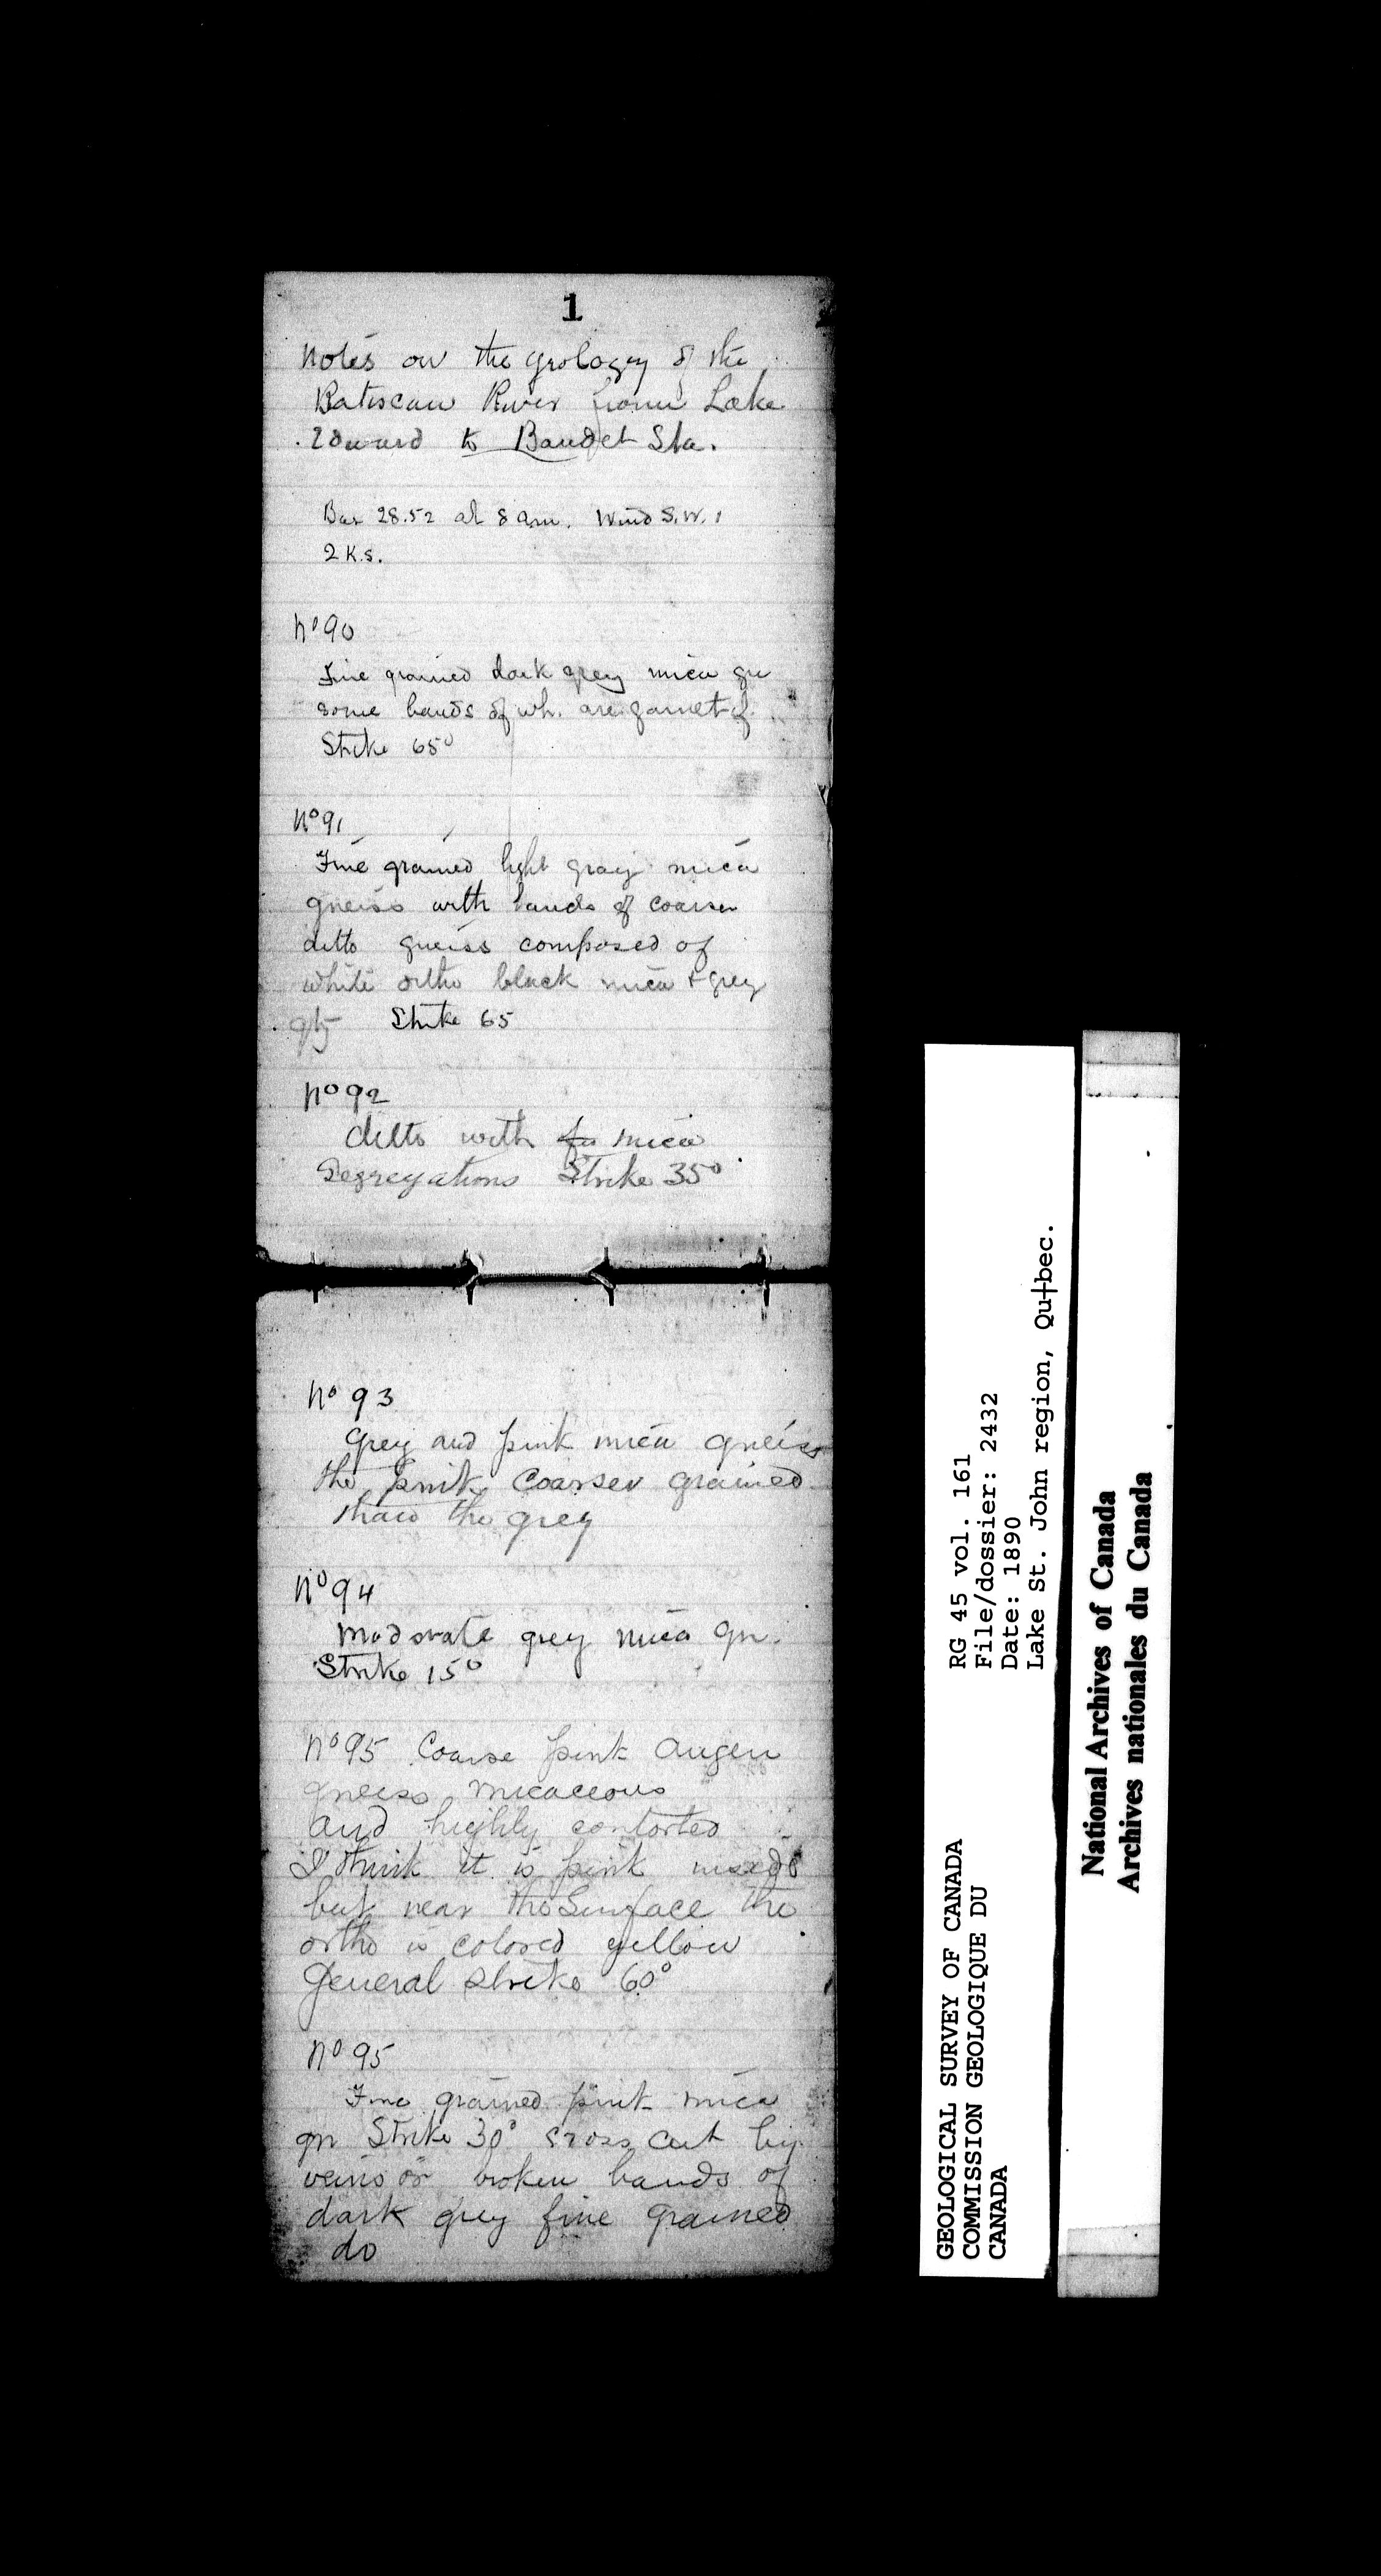 1
Notes on the geology of the
Batiscan River from Lake
Edward to Baudet Sta.
Bar 28.52 at 8 am. Wind S.W. 1
2 K.s.
No 90
Fine grained dark grey mica gn
some bands of wh. are garnetif.
Strike 65°
No 91
Fine grained light gray mica
gneiss with bands of coarser
ditto gneiss composed of
white ortho black mica + grey
qtz Strike 65
No 92
ditto with mica
Segregations Strike 35°
No 93
Grey and pink mica gneiss
the pink coarser grained
than the grey
No 94
Moderate grey mica gn.
Strike 15°
No 95 Coarse pink augen
gneiss micaceous
and highly contorted
I think it is pink
but near the Surface the
ortho is colored yellow
General strike 60°
No 95
Fine grained pink mica
gn Strike 30° cross cut by
veins or broken bands of
dark grey fine grained
do
GEOLOGICAL SURVEY OF CANADA
COMMISSION GEOLOGIQUE DU
CANADA
RG 45 vol. 161
File/dossier: 2432
Date: 1890
Lake St. John region, Qu†bec.
National Archives of Canada
Archives nationales du Canada